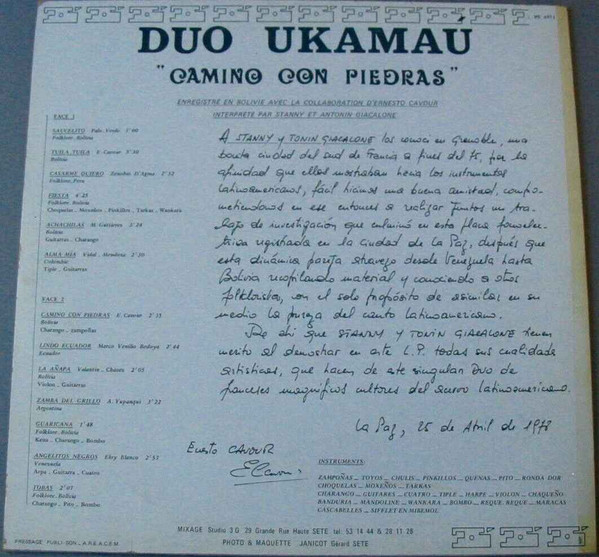 DUO UKAMAU
"CAMINO CON PIEDRAS"
ENREGISTRE EN BOLIVIE AVEC LA COLLABORATION D'ERNESTO CAVOUR
INTERPRETE PAR STANNY ET ANTONIN GIACALONE
FACE 1
Folklore .Bolivia
TUILA TUILA E. Cavour 2'30
Bolivia
CASARME QUIERO 2'32
Folklore .Peru
FIESTA 4'25
Folklore .Bolivia
Choquelas , Mezenhos , Pinkillos , Tarkas , Wankara
ACHACHILAS M. Gutiérrez 3'24
Bolivie
Guitarras , Charango
ALMA MÍA Vidal . Mendoza 2'20
Colombie
Tiple , Guitarras
FACE 2
CAMINO CON PIEDRAS E. Cavour 2'35
Bolivia
Charango , zampoñas
LINDO ECUADOR Marco Vinilio Bedoya 2'44
Ecuador
LA AÑAPA Valentin , Chazes 2'03
Bolivia
Violon , Guitarras
ZAMBA DEL GRILLO A. Yupanqui 3'22
Argentina
GUARICANA 1'48
Folklore .Bolivia
Kena , Charango , Bombo
ANGELITOS NEGROS Eloy Blanco 2'53
Venezuela
Arpa , Guitarra , Cuatro
TOBAS 2'07
Folklore .Bolivia
Charango , Pito , Bombo
A STANNY Y TONIN GIACALONE los conocí en Grenoble, una
bonita ciudad del sud de Francia a fines del 75, por la
afinidad que ellos mostraban hacia los instrumentos
latinoamericanos, fácil hicimos una buena amistad, compro-
metiendonos en ese entonces a realizar juntos un tra-
bajo de investigación que culminó en esta placa fonoelec-
trica registrada en la ciudad de La Paz, después que
esta dinámica pareja atravezo desde Venezuela hasta
Bolivia recopilando material y conociendo a otros
folkloristas, con el solo propósito de asimilar en su
medio la pureza del canto latinoamericano.
De ahí que STANNY Y TONIN GIACALONE tienen
merito al demostrar en este L.P. todas sus cualidades
artisticas, que hacen de este singular duo de
franceses magníficos cultores del acervo latinoamericano.
La Paz, 25 de Abril de 1978
Ernesto CAVOUR
INSTRUMENTS:
ZAMPOÑAS _ TOYOS _ CHULIS _ PINKILLOS _ QUENAS _ PITO _ RONDADOR
CHOQUELAS _ MOXEÑOS _ TARKAS
CHARANGO _ GUITARES _ CUATRO _ TIPLE _ HARPE _ VIOLON _ CHAQUEÑO
BANDURIA _ MANDOLINE _ WANKARA _ BOMBO _ REQUE REQUE _ MARACAS
CASCABELLES _ SIFFLET EN MIREMOL
MIXAGE Studio 3 G 29 Grande Rue Haute SETE tel. 53 14 44 & 28 11 28
PHOTO & MAQUETTE JANICOT Gérard SETE
PRESSAGE PUBLI-SON _ A.R.S.A.C.E.M.